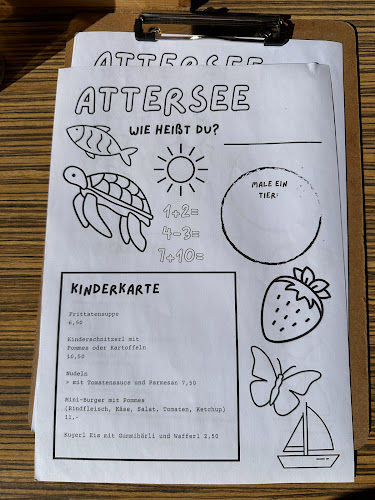 ATTERSEE
ATTERSEE
WIE HEIßT DU?
MALE EIN
TIER:
1+2=
4-3=
7+10=
KINDERKARTE
Frittatensuppe
6,50
Kinderschnitzerl mit
Pommes oder Kartoffeln
10,50
Nudeln
> mit Tomatensauce und Parmesan 7,50
Mini-Burger mit Pommes
(Rindfleisch, Käse, Salat, Tomaten, Ketchup)
12.-
Kugerl Eis mit Gummibärli und Wafferl 2,50